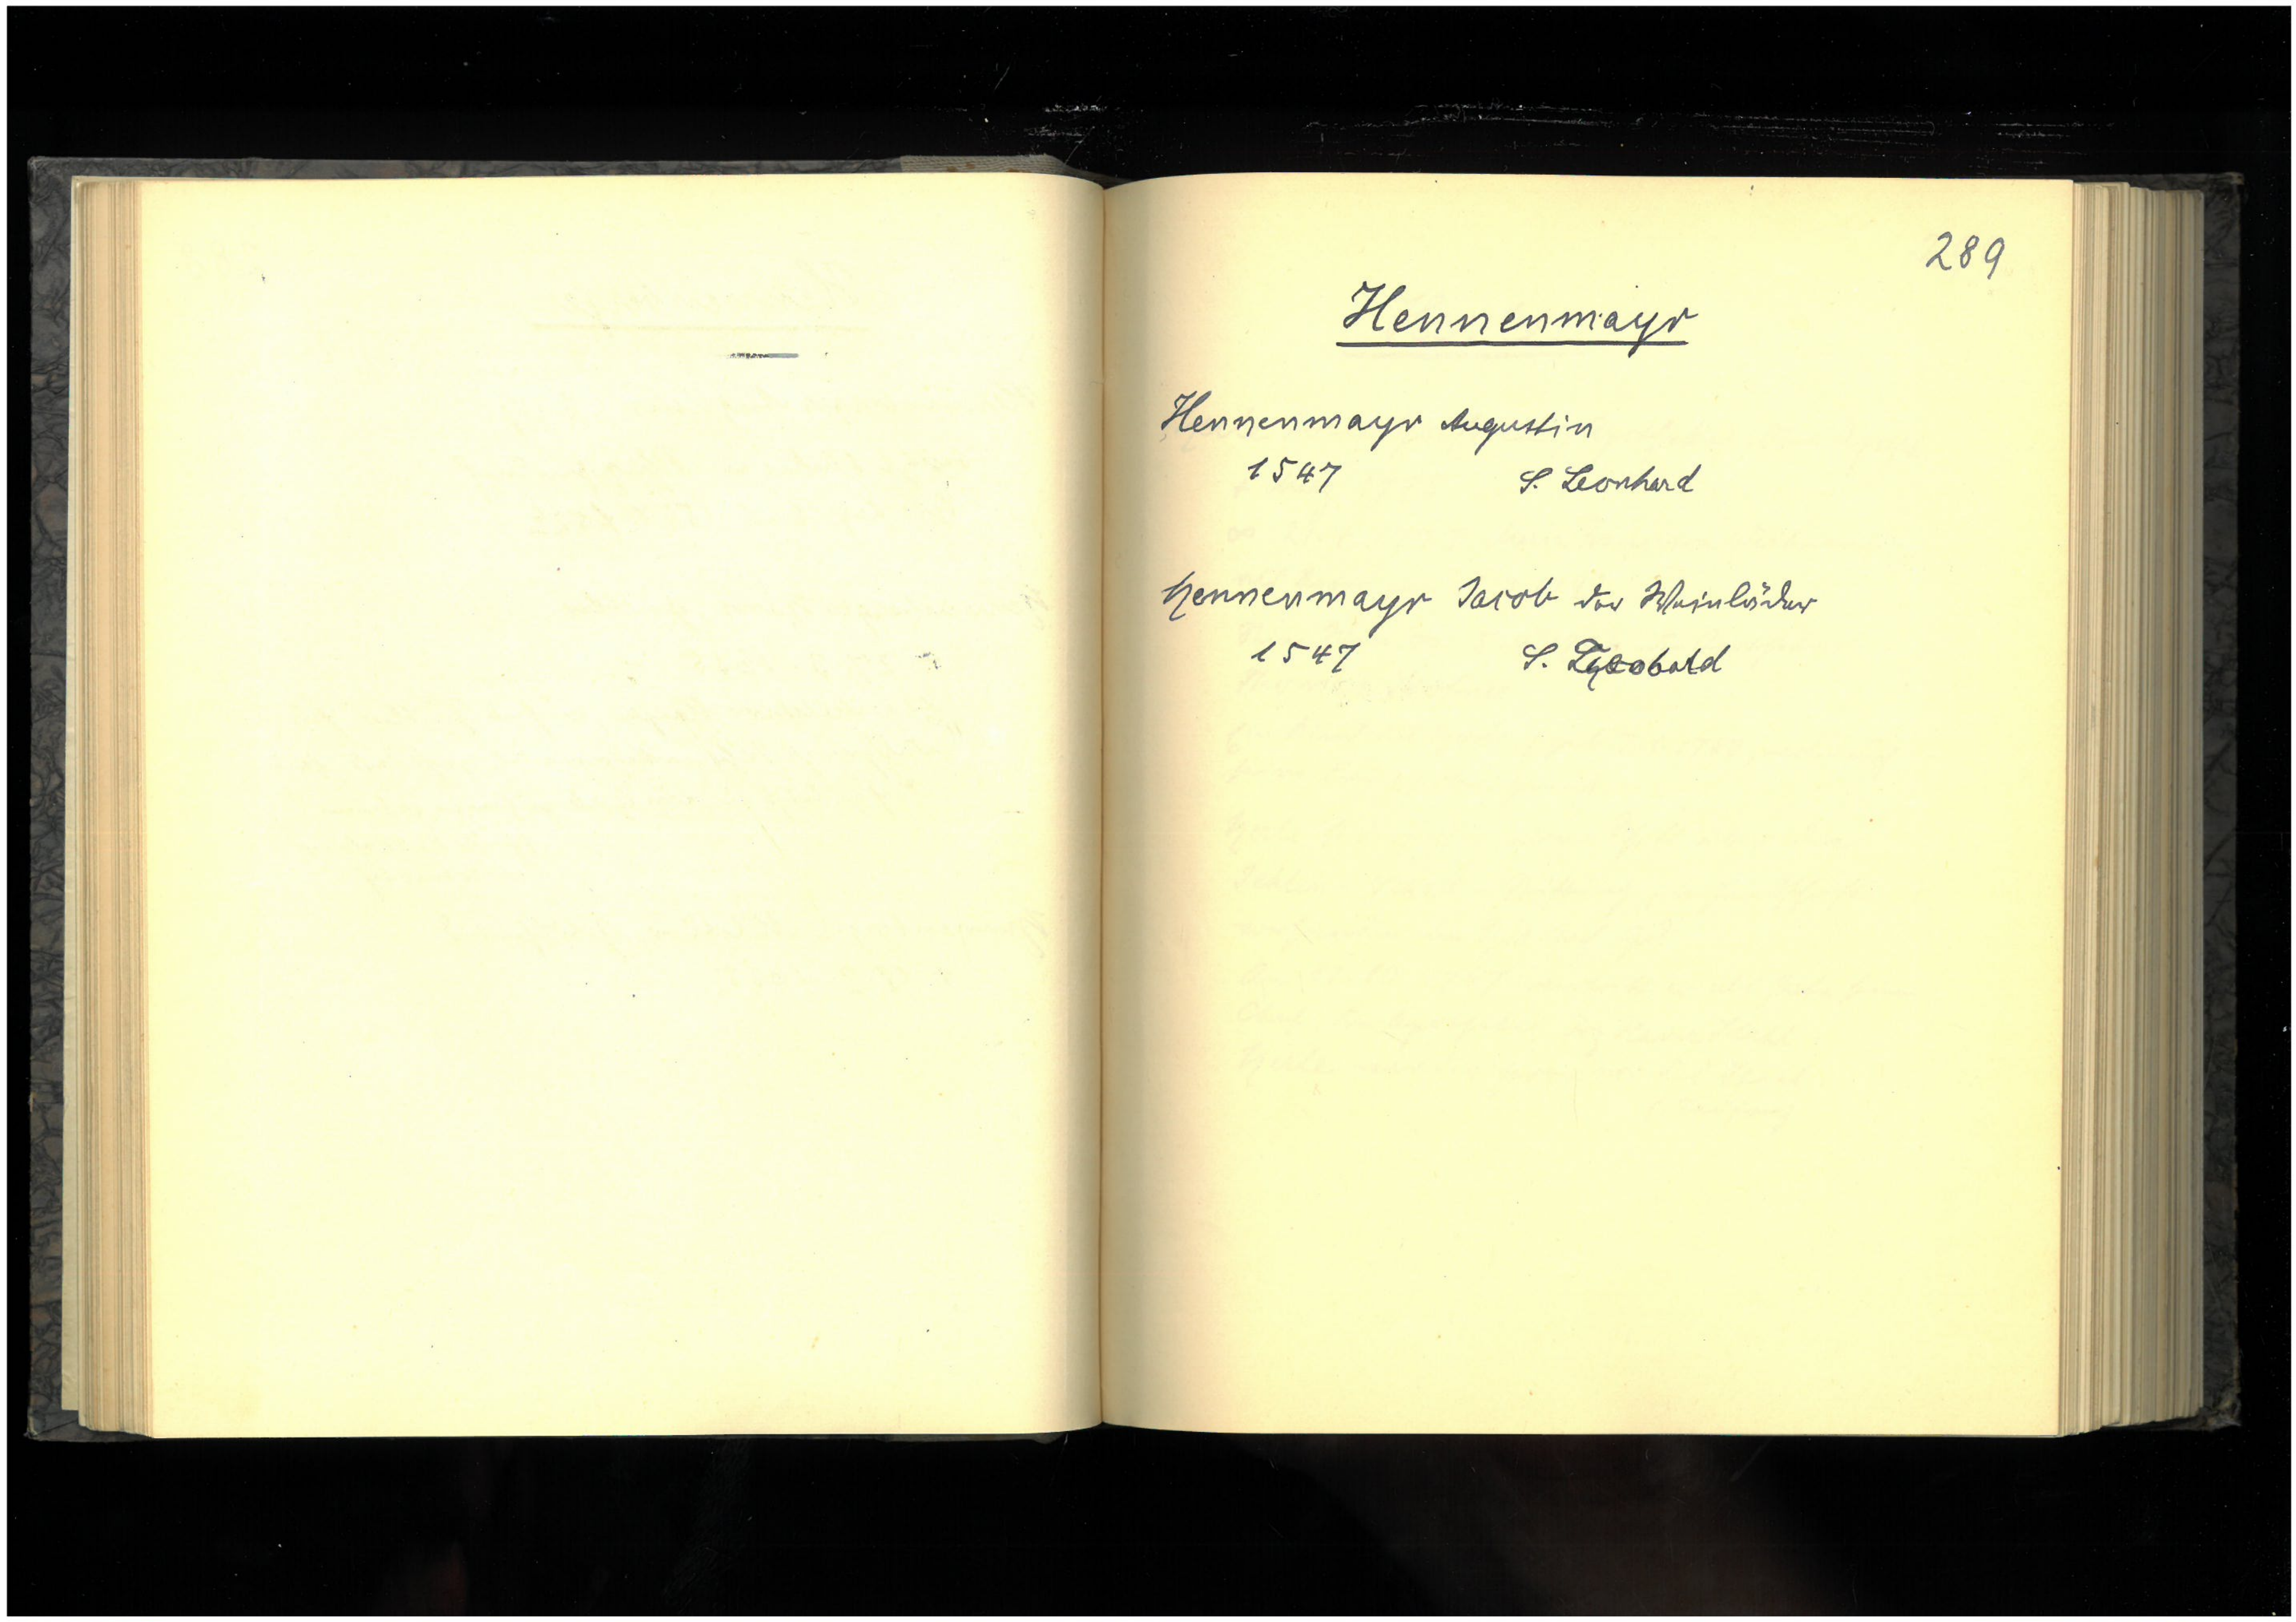 289
Hennenmayr
Hennenmayr Augustin
1547 S. Leonhard
Hennenmayr Jacob der Weinläder
1547 S.